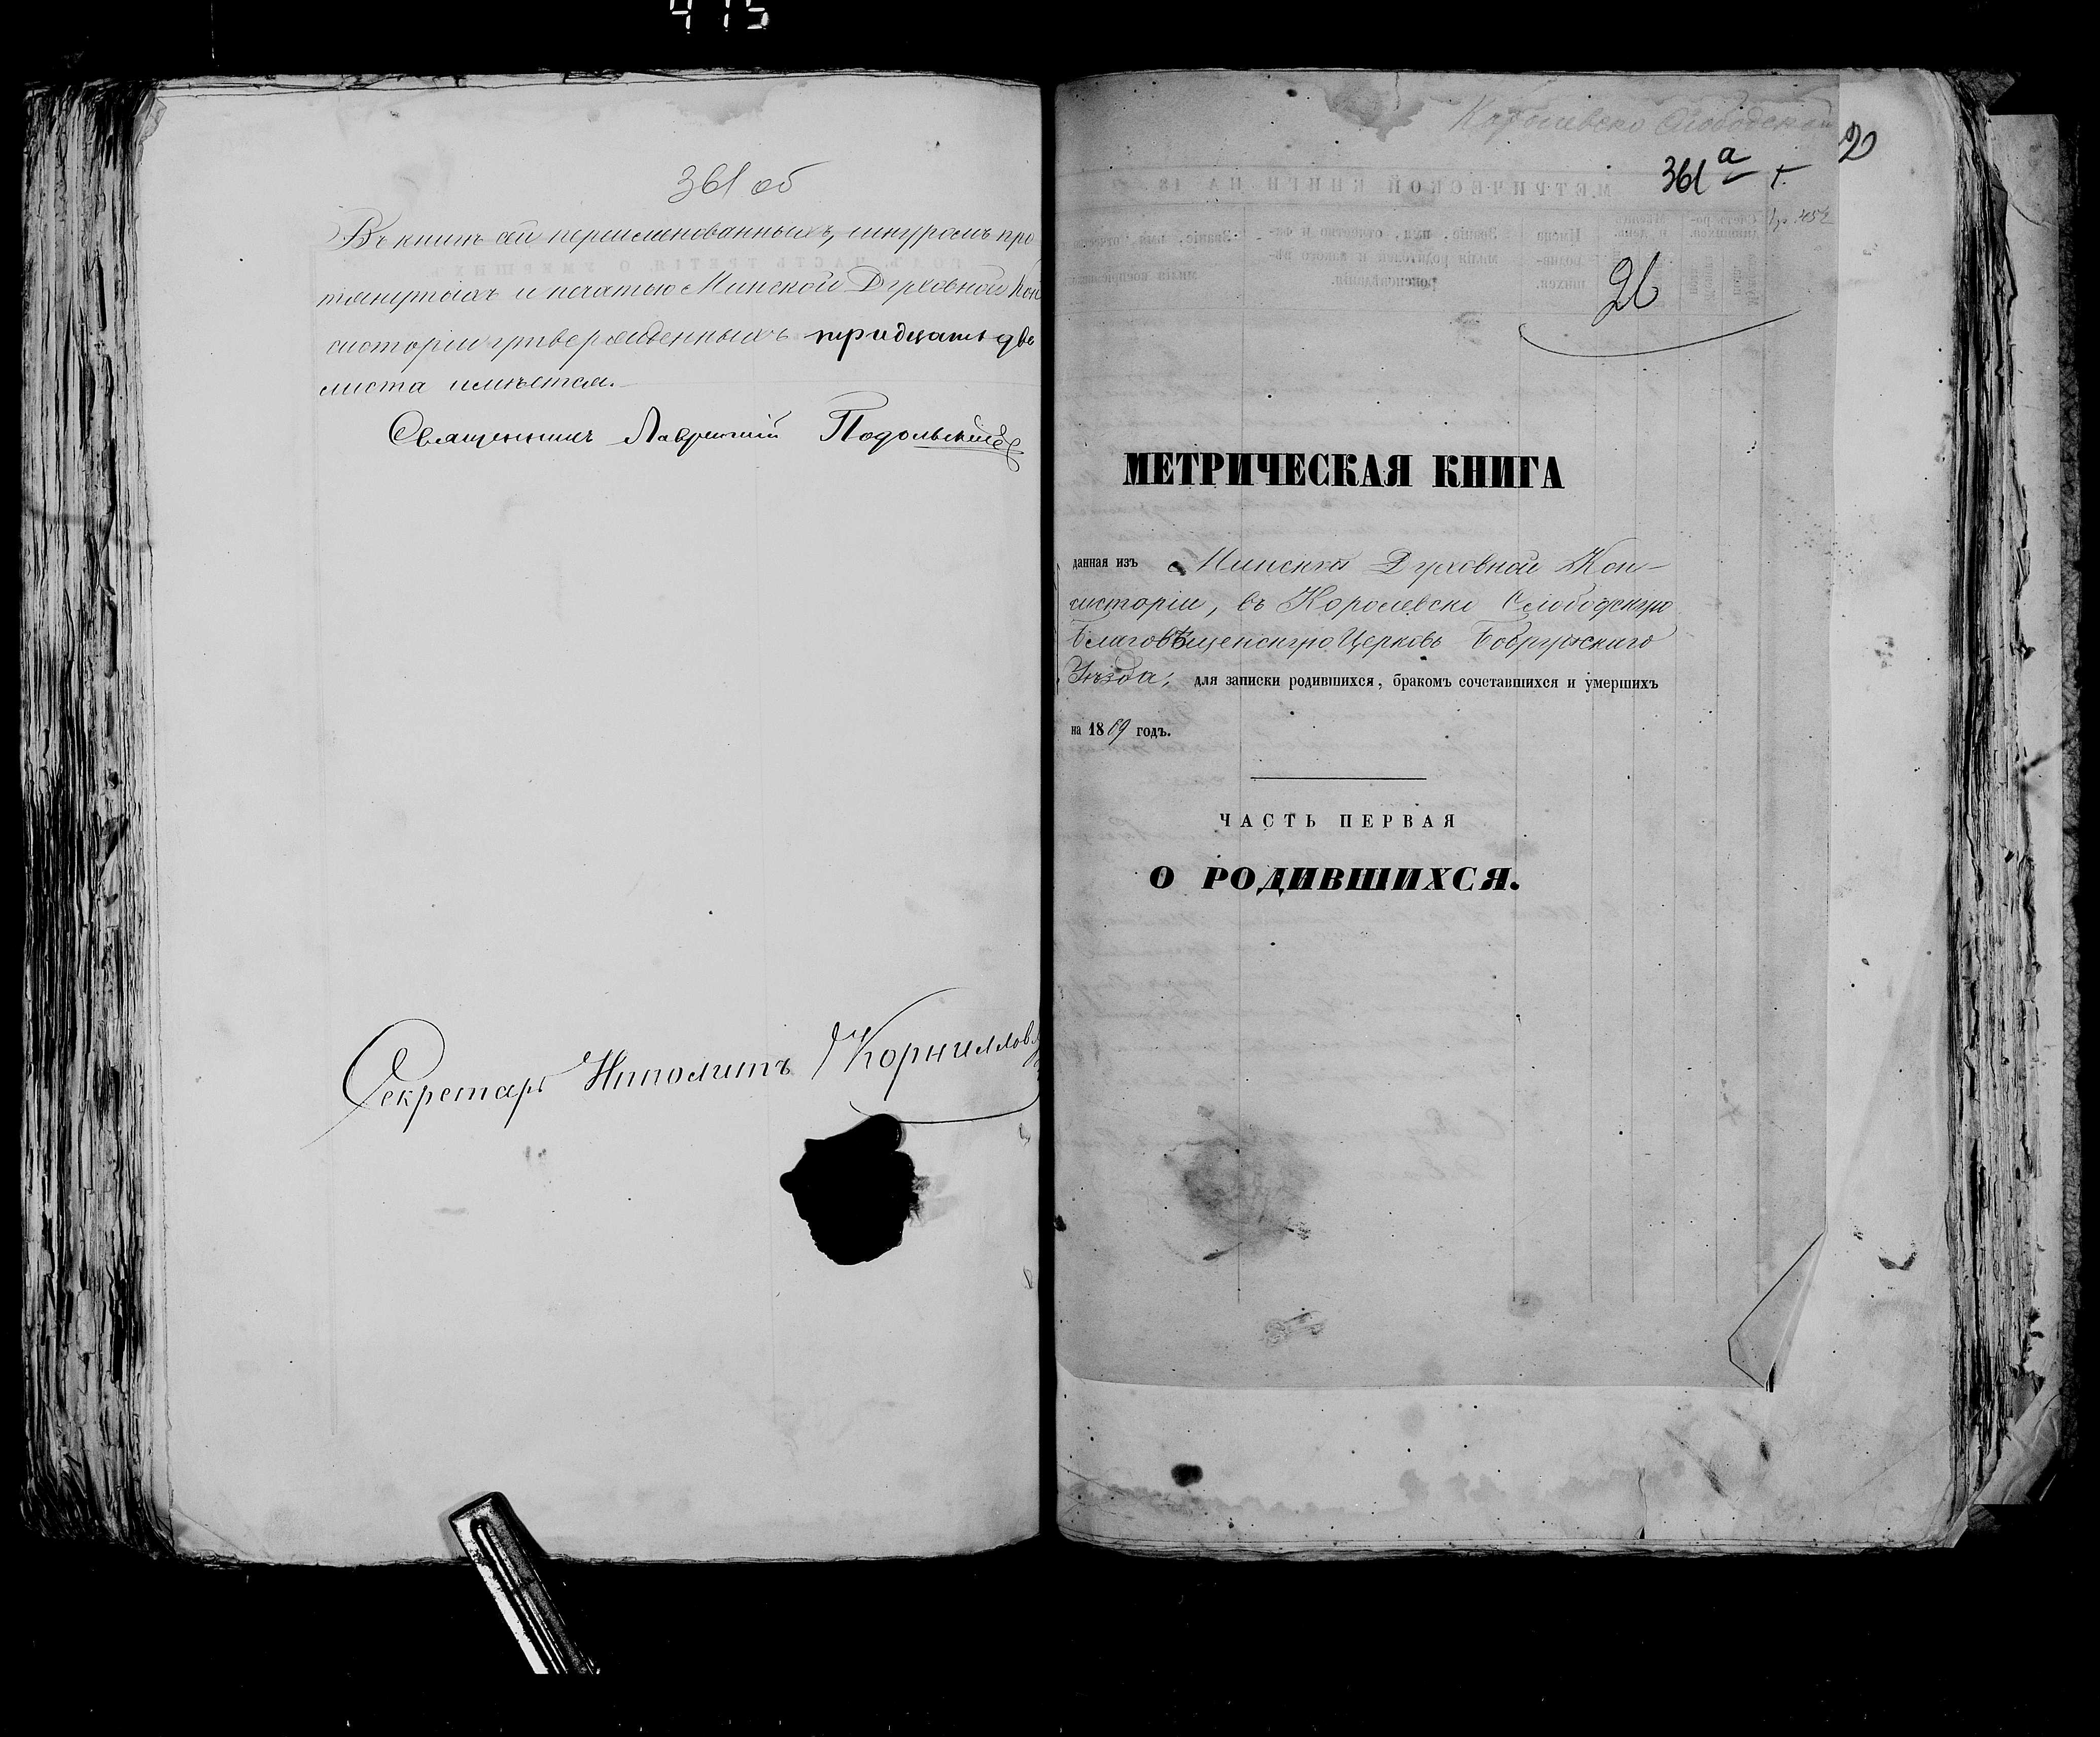 415
361 об
Въ книгѣ сей перенумерованныхъ, шнуромъ про
тянутыхъ и печатью Минской Духовной Кон
систоріи утвержденныхъ тридцать два
листа имѣется.
Священникъ Лаврентій Подольскій
Секретарь Ипполитъ Корниллов
Королевско Слободской
2
361 а
26
МЕТРИЧЕСКАЯ КНИГА
данная изъ Минской Духовной Кон-
систоріи, въ Королевско Слободскую
Благовѣщенскую Церковь Бобруйскаго
Уѣзда; для записки родившихся, бракомъ сочетавшихся и умершихъ
на 1869 годъ.
ЧАСТЬ ПЕРВАЯ
О РОДИВШИХСЯ.